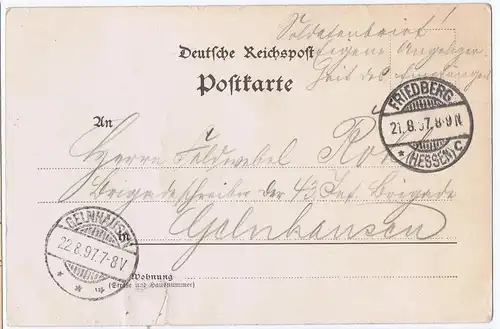 Soldatenbrief!
Eigene Angelegen-
heit des Empfängers
Deutsche Reichspost
Postkarte
FRIEDBERG
21.8.97.8-9N
* (HESSEN) C
An
Herrn Feldwebel
Brigadeschreiber der 43 Inf. Brigade
Gelnhausen
GELNHAUSEN
22.8.97.7-8V
* * *
Wohnung
(Straße und Hausnummer)